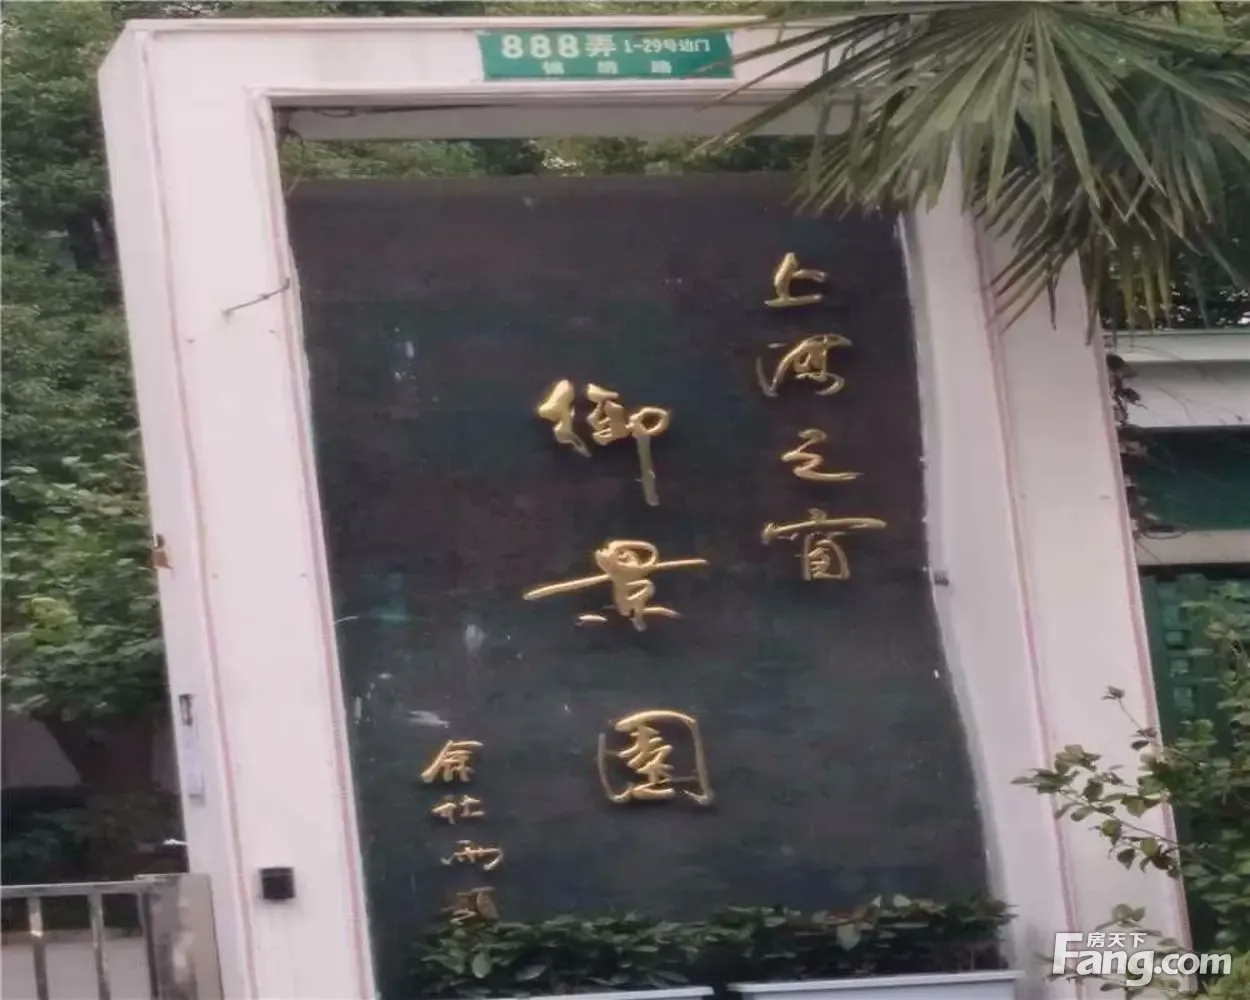 888弄 1-29号边门
锦绣路
上海之窗
御景园
房天下
Fang.com